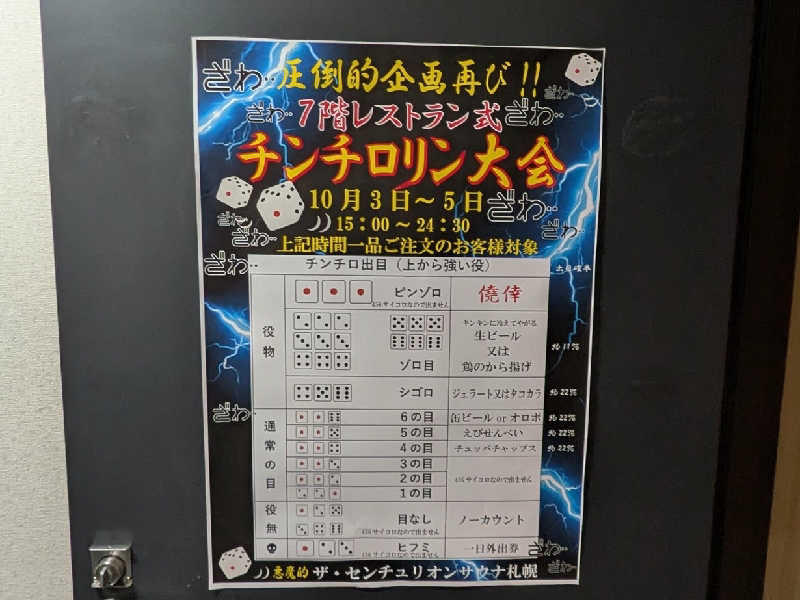 ざわ‥圧倒的企画再び!!
ざわ‥
ざわ‥7階レストラン式ざわ‥
チンチロリン大会
10月3日～5日
ざわ‥
15：00～24：30
ざわ‥
ざわ‥
ざわ‥
上記時間一品ご注文のお客様対象
ざわ‥
チンチロ出目（上から強い役）
出目確率
役物
ピンゾロ
456サイコロなので出ません
僥倖
ゾロ目
キンキンに冷えてやがる
生ビール
又は
鶏のから揚げ
約11%
シゴロ
ジェラート又はタコカラ
約22%
ざわ‥
通常の目
6の目
缶ビール or オロポ
約22%
5の目
えびせんべい
約22%
4の目
チュッパチャップス
約22%
3の目
2の目
456サイコロなので出ません
1の目
役無
目なし
456サイコロなので出ません
ノーカウント
ヒフミ
456サイコロなので出ません
一日外出券
ざわ‥
ざわ‥
悪魔的 ザ・センチュリオンサウナ札幌